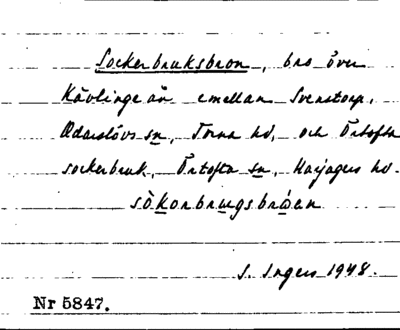 Sockerbruksbron, bro över
Kävlingeån emellan Svenstorp,
Odarslövs sn, Torna hd, och Örtofta
sockerbruk, Örtofta sn, Harjagers hd.
sòkorbrugsbròen
S. Ingers 1948.
Nr 5847.